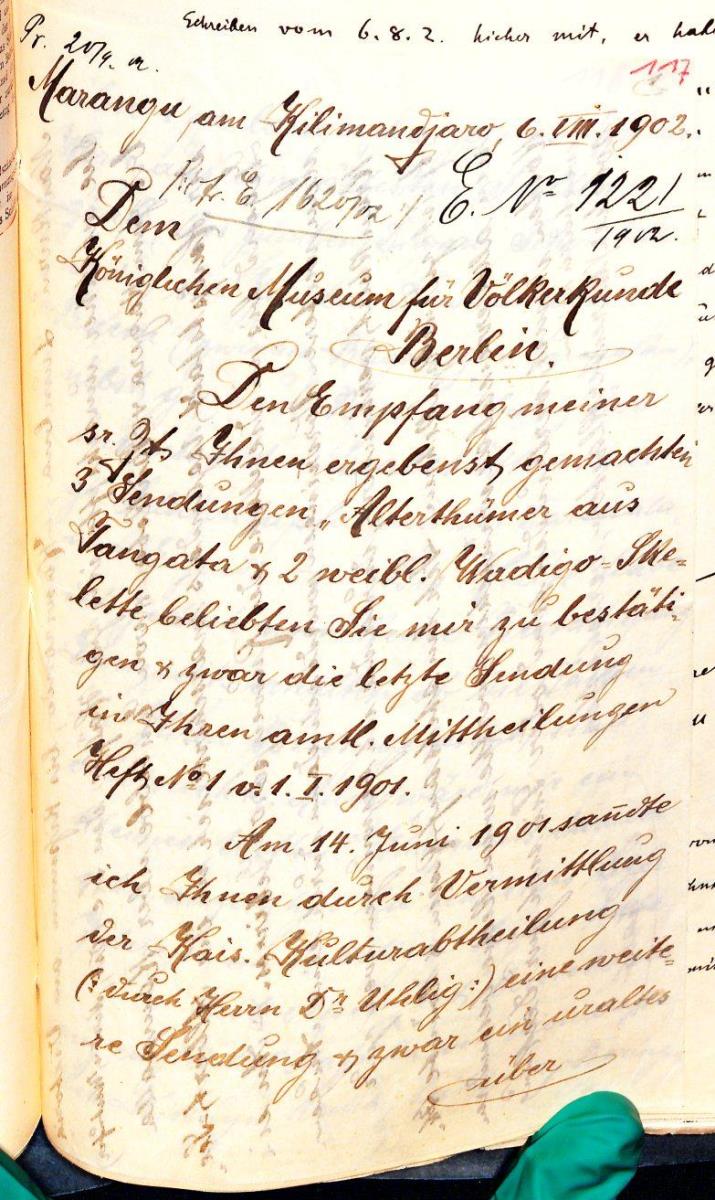 Schreiben vom 6.8.2. hicher mit, er
Pr. 20/9. 02.
117
Marangu am Kilimandjaro, 6. VIII. 1902.
E. 1620/02 :/ E. No 1221/1902.
Dem
Königlichen Museum für Völkerkunde
Berlin.
Den Empfang meiner
sr. Zt. Ihnen ergebenst gemachten
3 Sendungen „Alterthümer aus
Tangata & 2 weibl. Wadigo=Ske=
lette beliebten Sie mir zu bestäti-
gen & zwar die letzte Sendung
in Ihren amtl. Mittheilungen
Heft No 1 v. 1. I. 1901.
Am 14. Juni 1901 sandte
ich Ihnen durch Vermittlung
der Kais. Kulturabtheilung
(: durch Herrn Dr Uhlig :) eine weite=
re Sendung & zwar ein uraltes
über